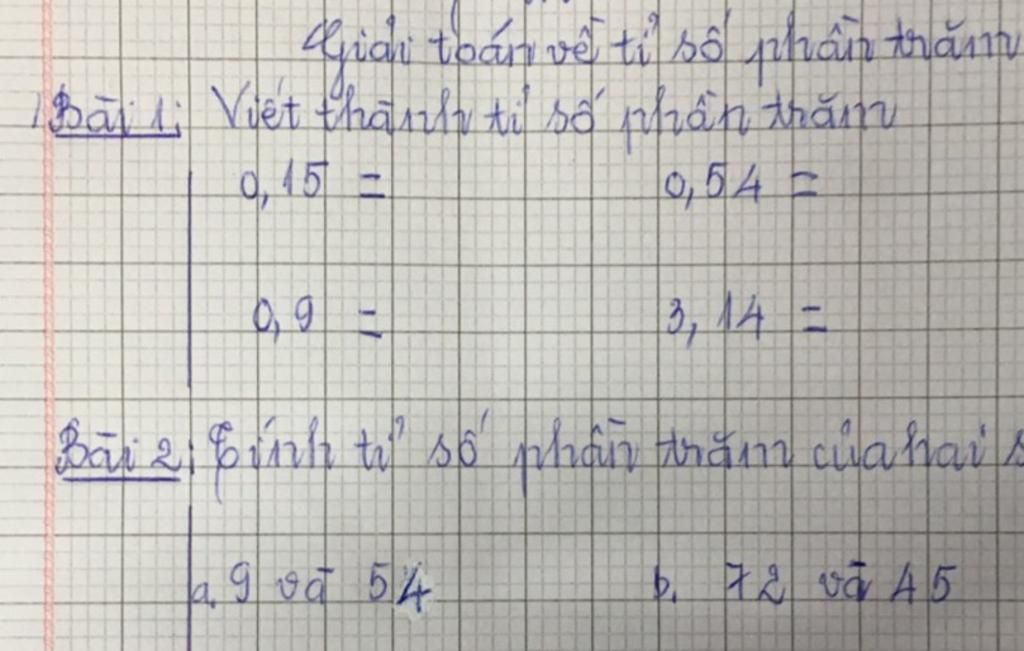 Giải toán về tỉ số phần trăm
Bài 1: Viết thành tỉ số phần trăm
0,15 = 0,54 =
0,9 = 3,14 =
Bài 2: Tính tỉ số phần trăm của hai
a. 9 và 54 b. 72 và 45